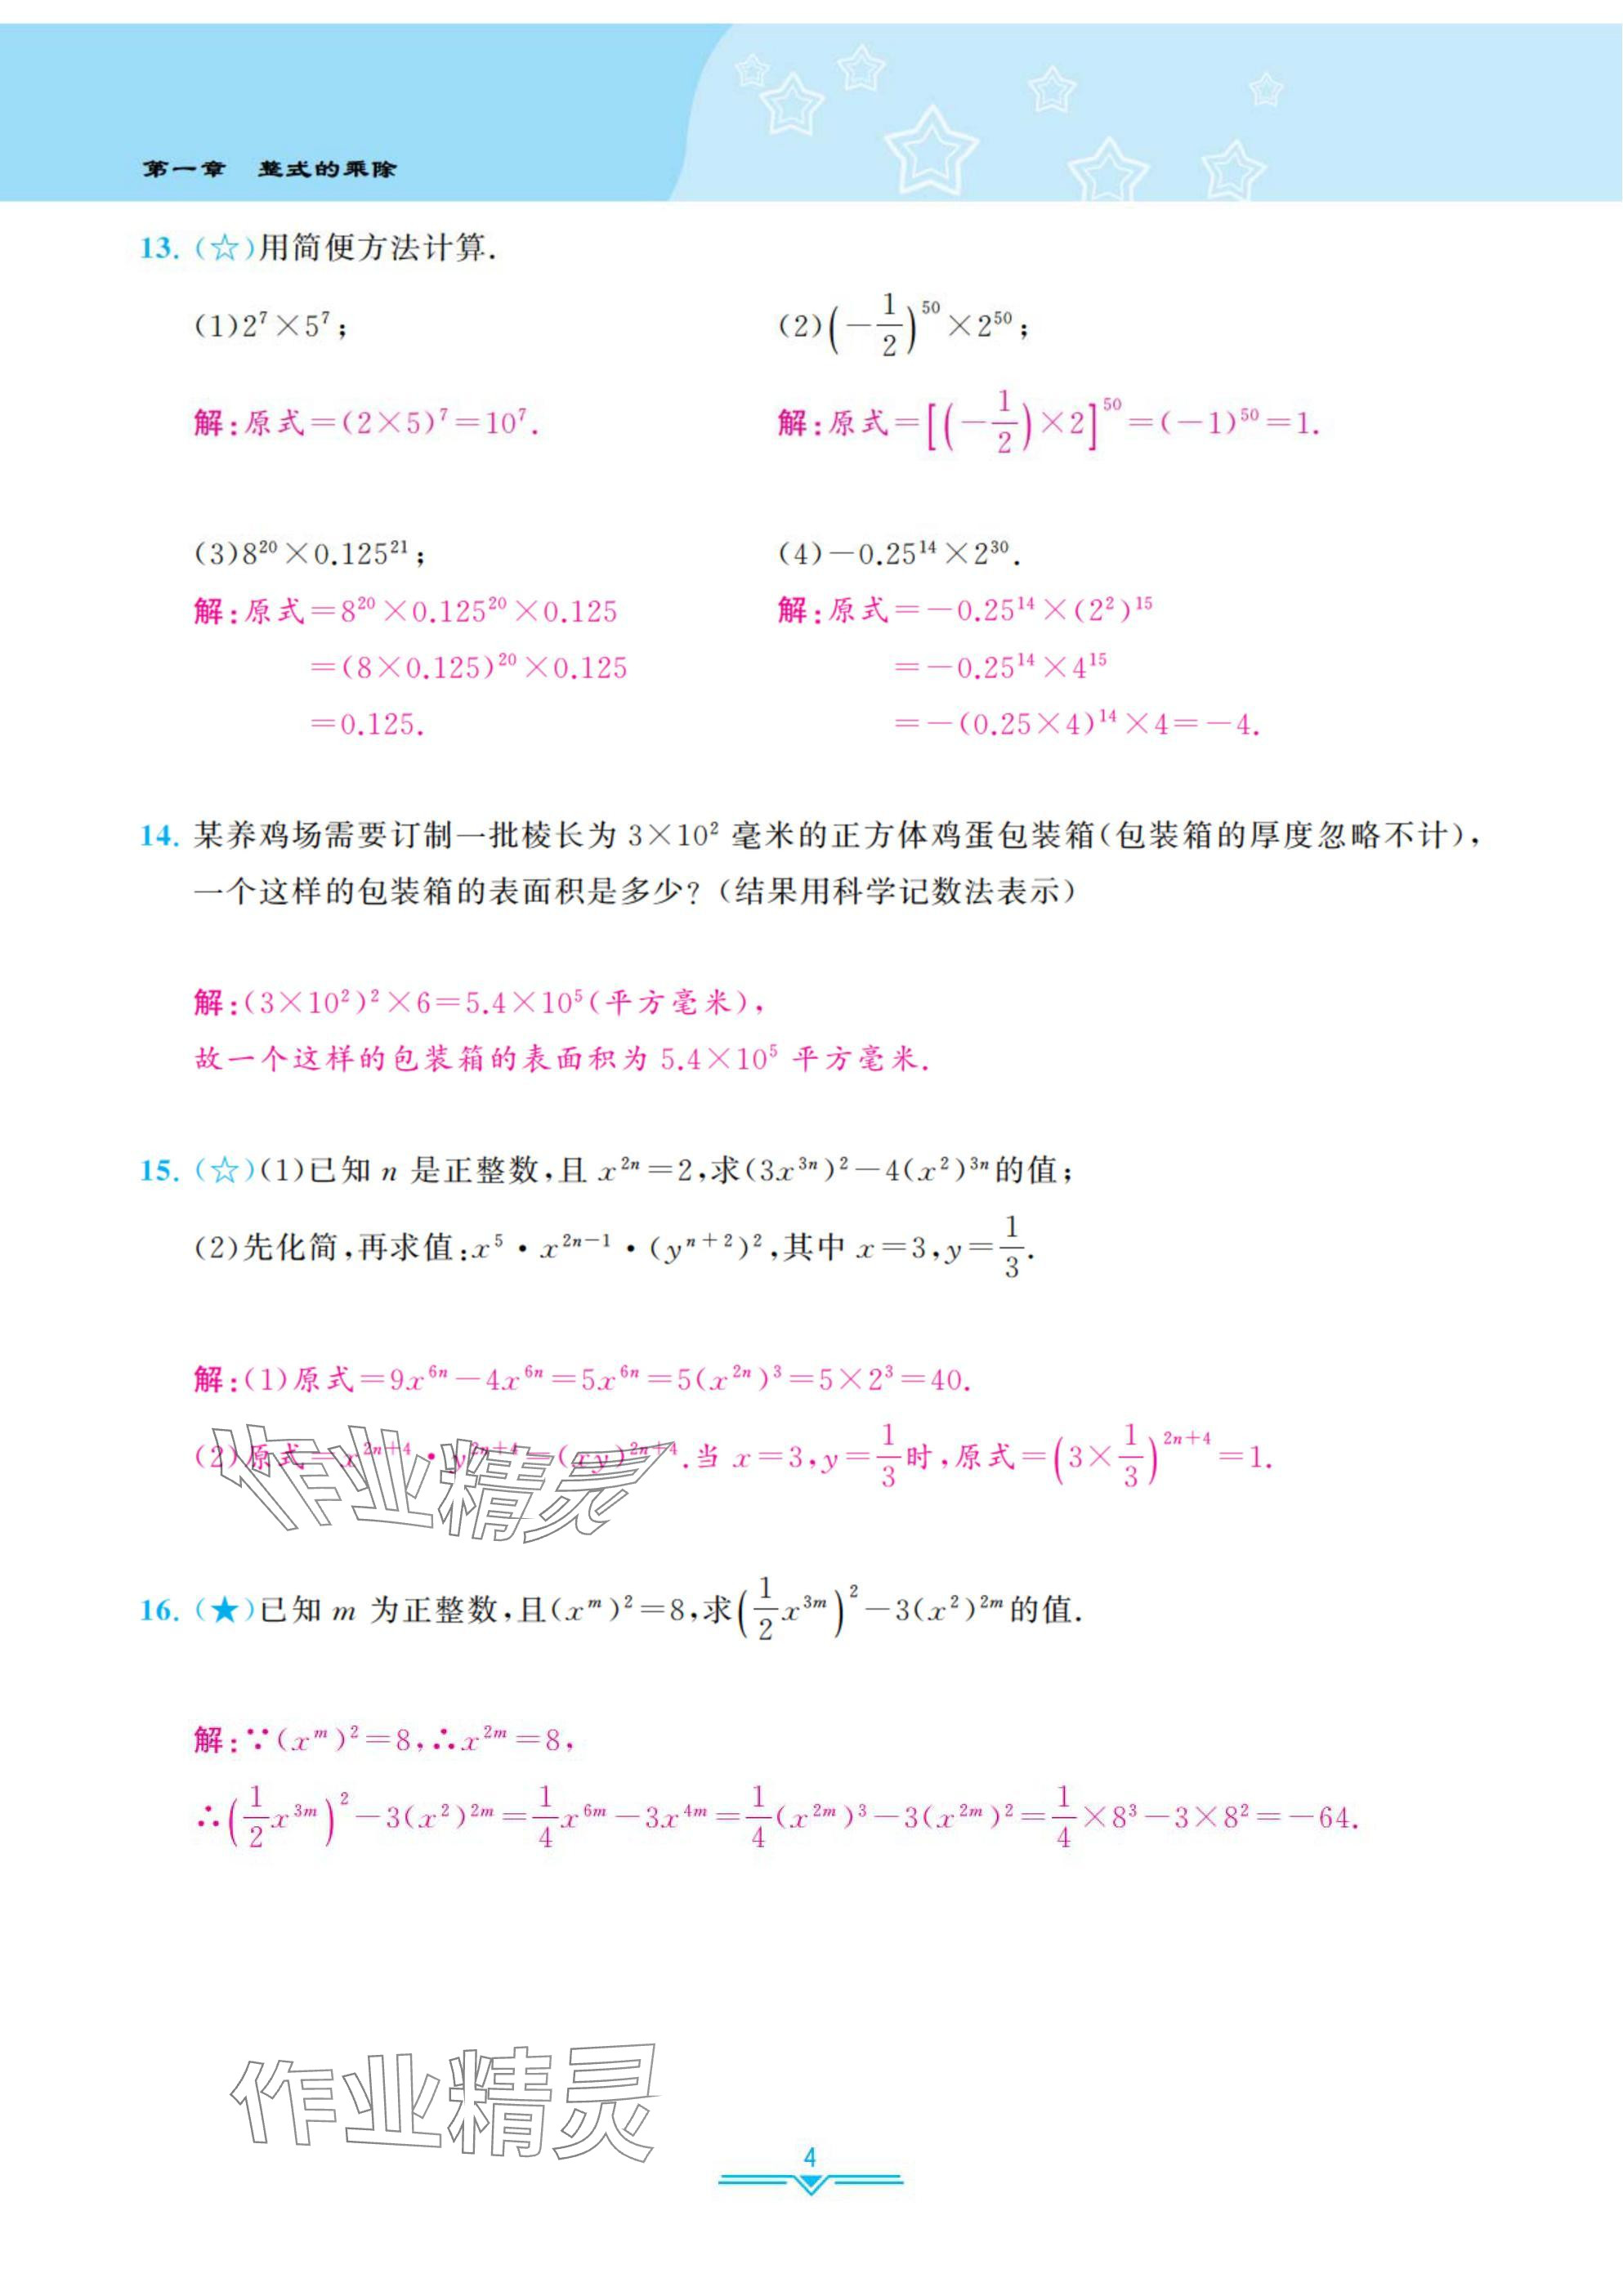 第一章 整式的乘除
13. (☆)用简便方法计算.
(1)2⁷×5⁷; (2)(-1/2)⁵⁰×2⁵⁰;
解:原式=(2×5)⁷=10⁷. 解:原式=[(-1/2)×2]⁵⁰=(-1)⁵⁰=1.
(3)8²⁰×0.125²¹; (4)-0.25¹⁴×2³⁰.
解:原式=8²⁰×0.125²⁰×0.125 解:原式=-0.25¹⁴×(2²)¹⁵
=(8×0.125)²⁰×0.125 =-0.25¹⁴×4¹⁵
=0.125. =-(0.25×4)¹⁴×4=-4.
14. 某养鸡场需要订制一批棱长为 3×10² 毫米的正方体鸡蛋包装箱(包装箱的厚度忽略不计),
一个这样的包装箱的表面积是多少?(结果用科学记数法表示)
解:(3×10²)²×6=5.4×10⁵(平方毫米),
故一个这样的包装箱的表面积为 5.4×10⁵ 平方毫米.
15. (☆)(1)已知 n 是正整数,且 x²ⁿ=2,求(3x³ⁿ)²-4(x²)³ⁿ的值;
(2)先化简,再求值:x⁵·x²ⁿ⁻¹·(yⁿ⁺²)²,其中 x=3,y=1/3.
解:(1)原式=9x⁶ⁿ-4x⁶ⁿ=5x⁶ⁿ=5(x²ⁿ)³=5×2³=40.
(2)原式=x²ⁿ⁺⁴·y²ⁿ⁺⁴=(xy)²ⁿ⁺⁴.当 x=3,y=1/3时,原式=(3×1/3)²ⁿ⁺⁴=1.
作业精灵
16. (★)已知 m 为正整数,且(xᵐ)²=8,求(1/2x³ᵐ)²-3(x²)²ᵐ的值.
解:∵(xᵐ)²=8,∴x²ᵐ=8,
∴(1/2x³ᵐ)²-3(x²)²ᵐ=1/4x⁶ᵐ-3x⁴ᵐ=1/4(x²ᵐ)³-3(x²ᵐ)²=1/4×8³-3×8²=-64.
作业精灵
4